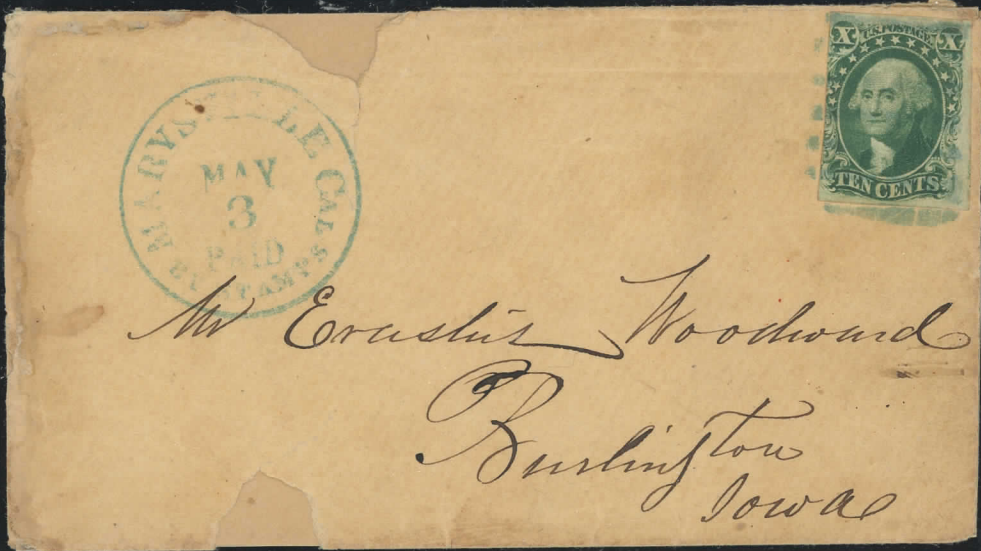 MARYSVILLE CAL
MAY
3
PAID
BY STAMPS
X U.S. POSTAGE X
TEN CENTS
Mr Erastus Woodward
Burlington
Iowa